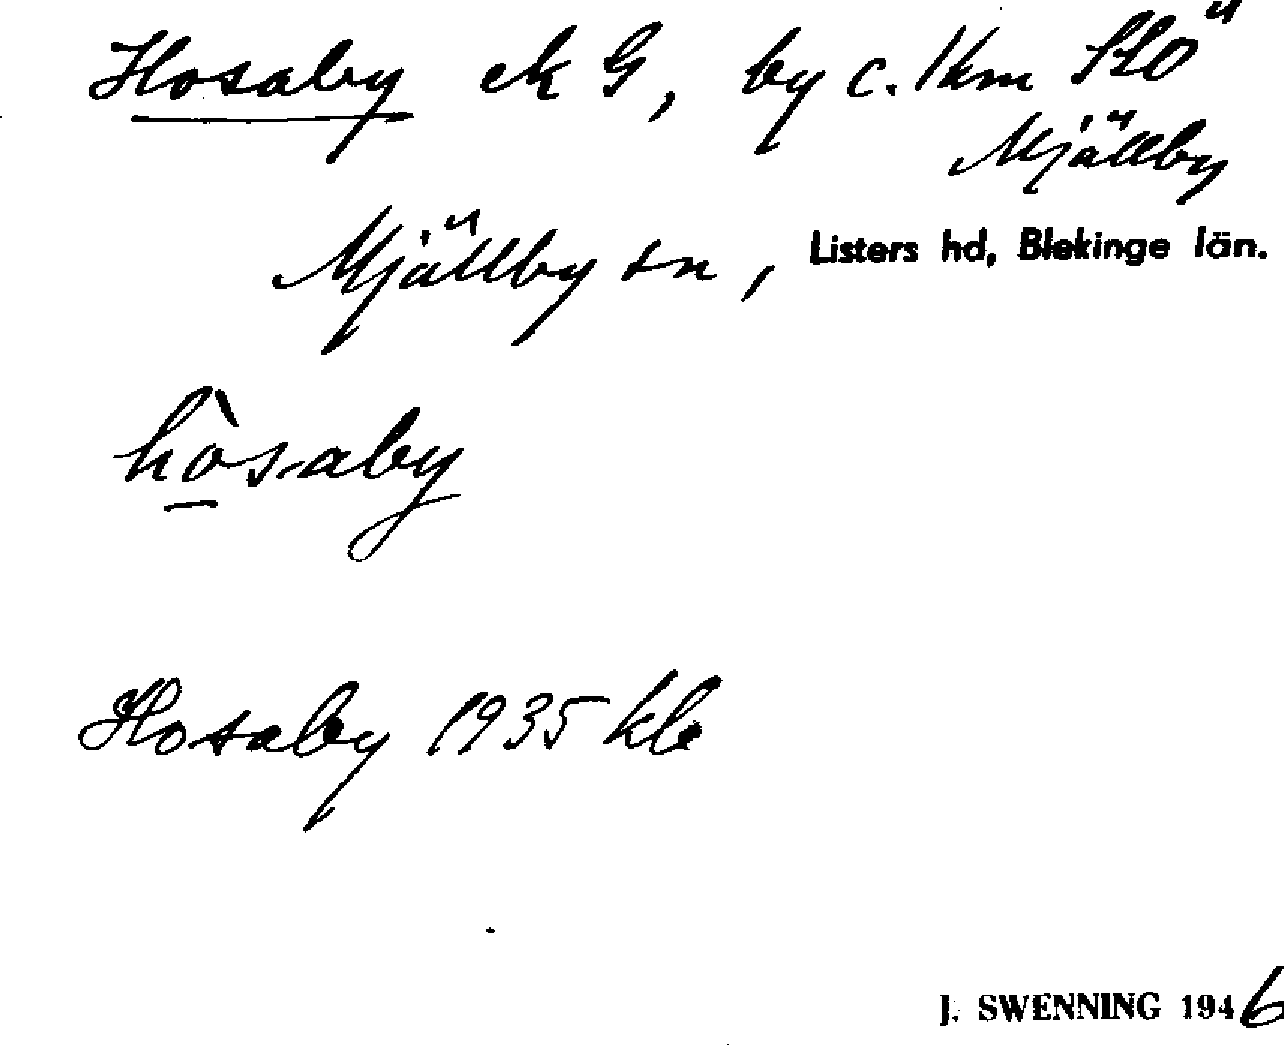 Hosaby ek G, by c. 1km SSÖ
Mjällby
Mjällby sn, Listers hd, Blekinge län.
hòsaby
Hosaby 1935 kb
J. SWENNING 1946